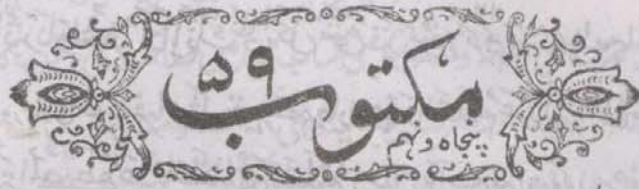 مکتوب ۵۹
پنجاه ونہم